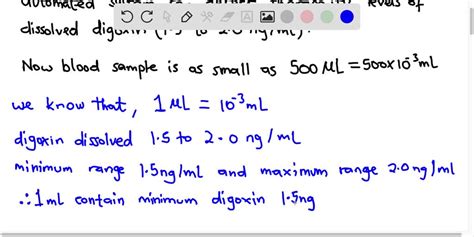 automated
levels of
dissolved digoxin (1.5 to 2.0 ng/mL).
Now blood sample is as small as 500 μL = 500×10⁻³mL
we know that, 1 μL = 10⁻³mL
digoxin dissolved 1.5 to 2.0 ng/mL
minimum range 1.5ng/mL and maximum range 2.0ng/mL
∴ 1mL contain minimum digoxin 1.5ng